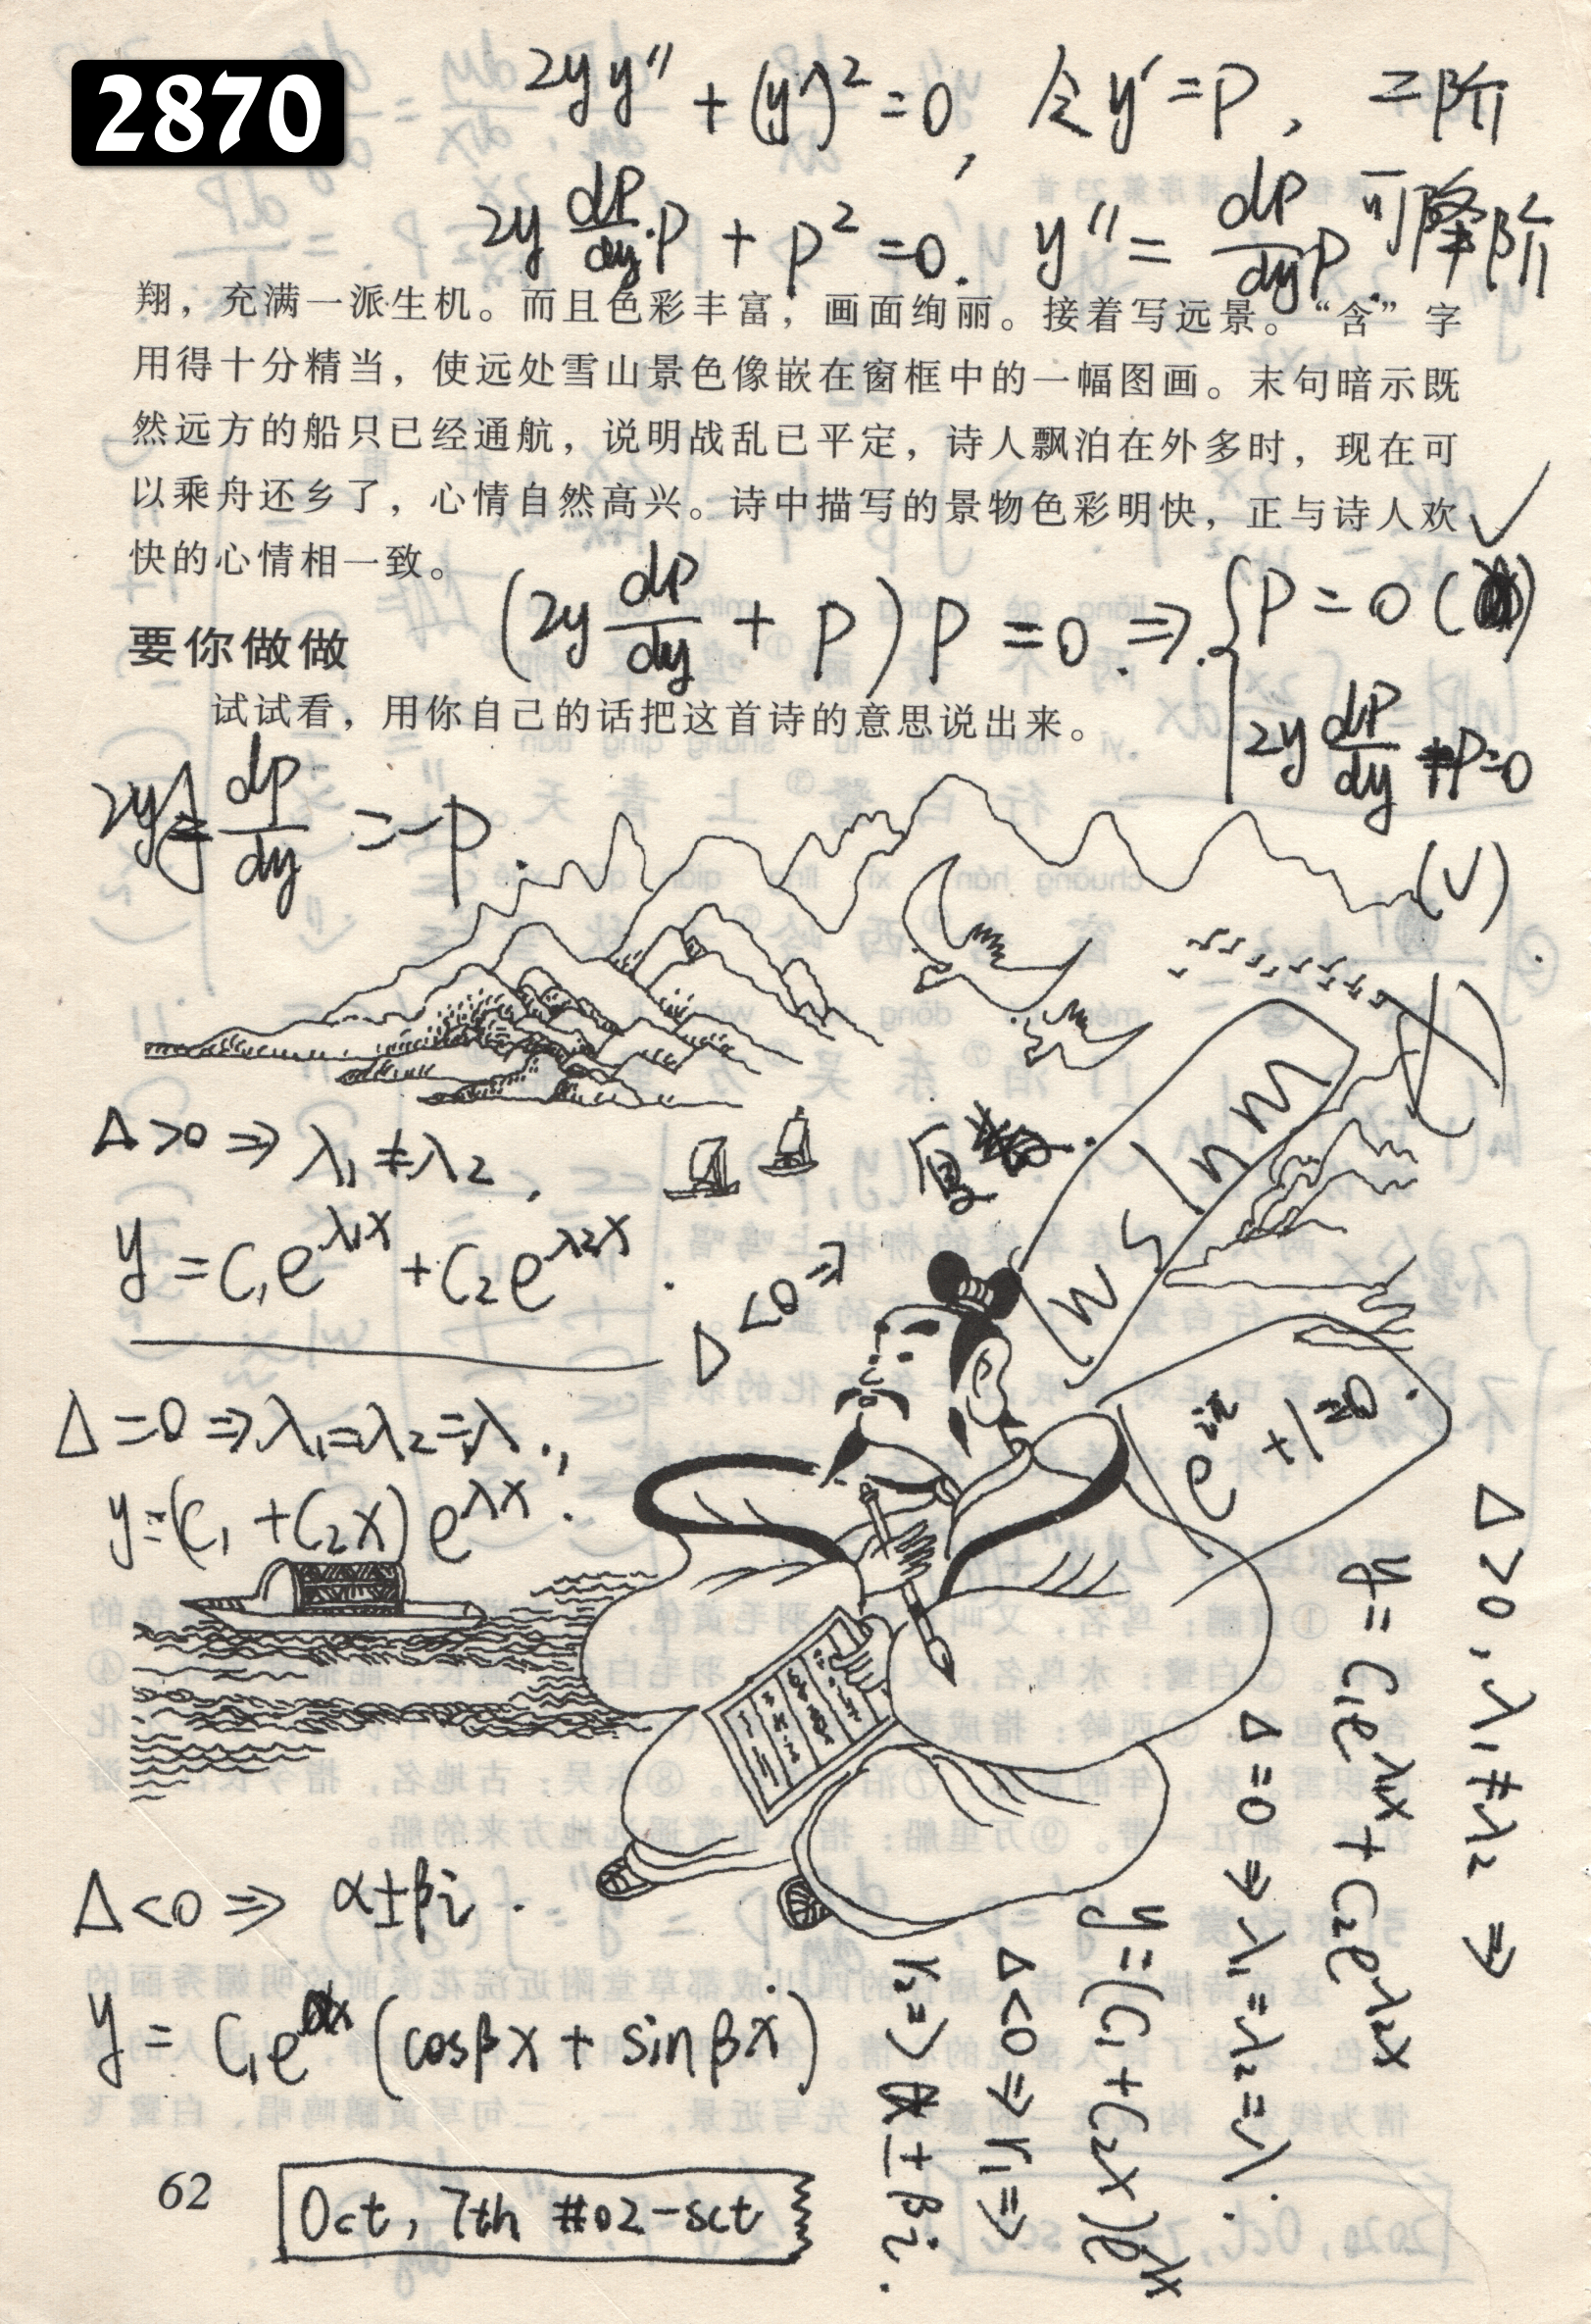 2870
2yy" + (y')² = 0, 令 y' = P, 二阶
2y dP/dy · P + P² = 0. y'' = dP/dy P. 可降阶
翔，充满一派生机。而且色彩丰富，画面绚丽。接着写远景。“含”字
用得十分精当，使远处雪山景色像嵌在窗框中的一幅图画。末句暗示既
然远方的船只已经通航，说明战乱已平定，诗人飘泊在外多时，现在可
以乘舟还乡了，心情自然高兴。诗中描写的景物色彩明快，正与诗人欢
快的心情相一致。
(2y dP/dy + P) P = 0. ⇒ { P = 0
2y dP/dy + P = 0
要你做做
试试看，用你自己的话把这首诗的意思说出来。
2y dP/dy = -P.
(√)
Δ>0 ⇒ λ₁ ≠ λ₂,
y = C₁e^λ₁x + C₂e^λ₂x.
Δ<0 ⇒
e^iπ + 1 = 0.
Δ=0 ⇒ λ₁=λ₂=λ.,
y=(C₁+C₂x)e^λx.
Δ>0, λ₁≠λ₂ ⇒
y = C₁e^λ₁x + C₂e^λ₂x
Δ=0 ⇒ λ₁=λ₂=λ.
y=(C₁+C₂x)e^λx
Δ<0 ⇒ r₁ ⇒
r₂ ⇒ α±βi.
Δ<0 ⇒ α±βi.
y = C₁e^αx (cosβx + sinβx)
62
Oct, 7th #02-sct